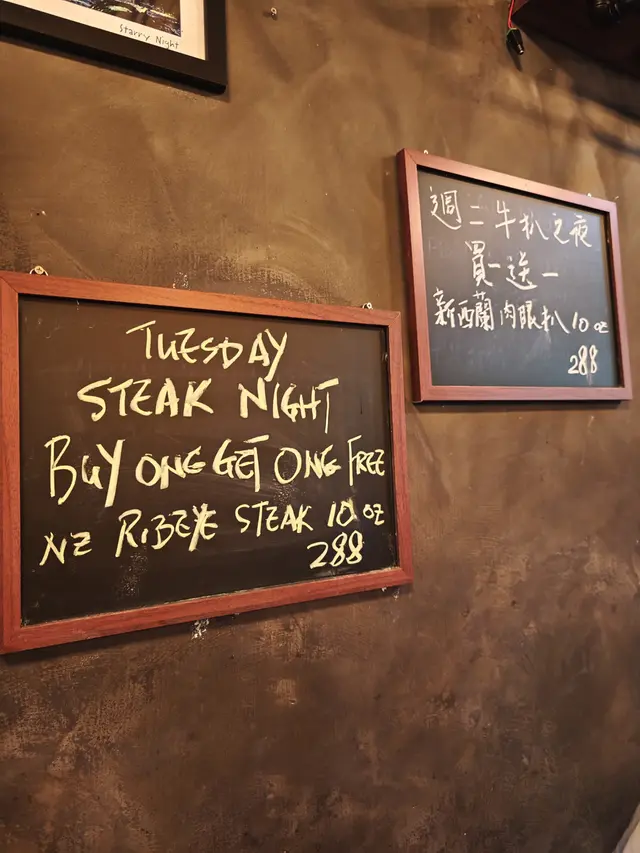 Starry Night
TUESDAY
STEAK NIGHT
BUY ONE GET ONE FREE
NZ RIBEYE STEAK 10 OZ
288
週二牛扒之夜
買一送一
新西蘭肉眼扒 10 oz
288